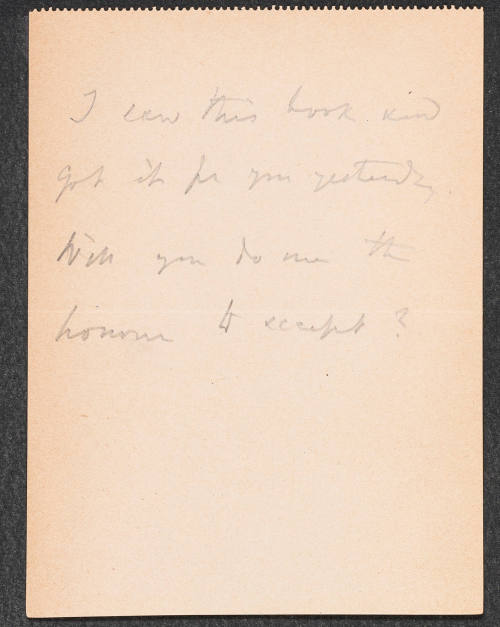 I saw this book and
got it for you yesterday.
Will you do me the
honour to accept?